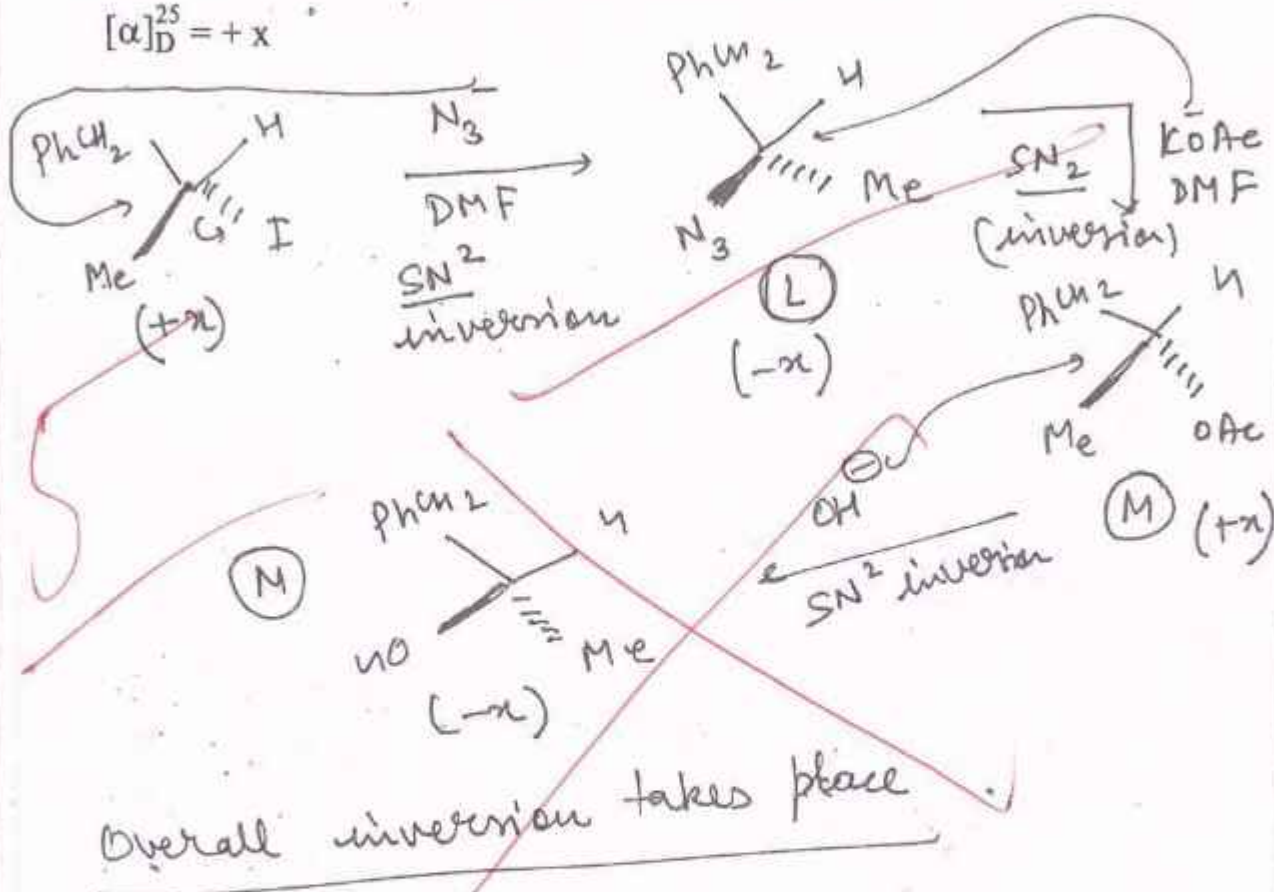 [α]25D = + x
PhCH2 H
Me I
(+x)
N3-
DMF
SN2
inversion
PhCH2 H
N3 Me
L
(-x)
SN2
(inversion)
KOAc
DMF
PhCH2 H
Me OAc
M (+x)
OH
SN2 inversion
M
PhCH2 H
HO Me
(-x)
Overall inversion takes place